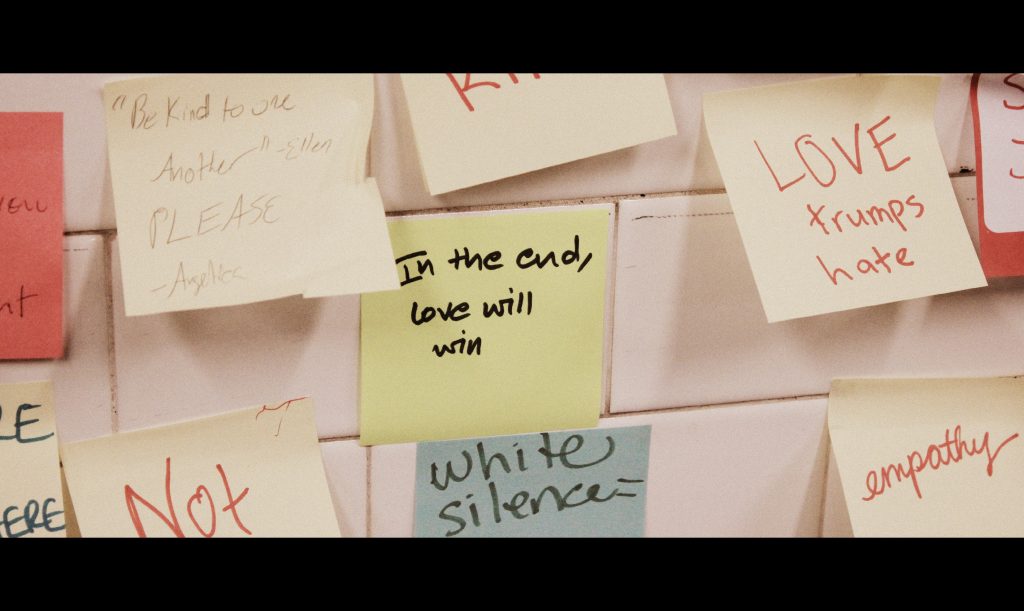 "Be Kind to one
Another" -Ellen
PLEASE
-Angelica
In the end,
love will
win
LOVE
trumps
hate
Not
white
silence=
empathy